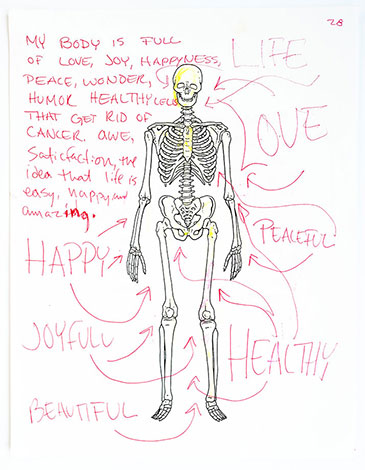 28
MY BODY IS FULL
OF LOVE, JOY, HAPPYNESS,
PEACE, WONDER,
HUMOR HEALTHY CELLS
THAT GET RID OF
CANCER. AWE,
Satisfaction, the
idea that life is
easy, happy and
amazing.
LIFE
LOVE
PEACEFUL
HAPPY
JOYFULL
HEALTHY
BEAUTIFUL